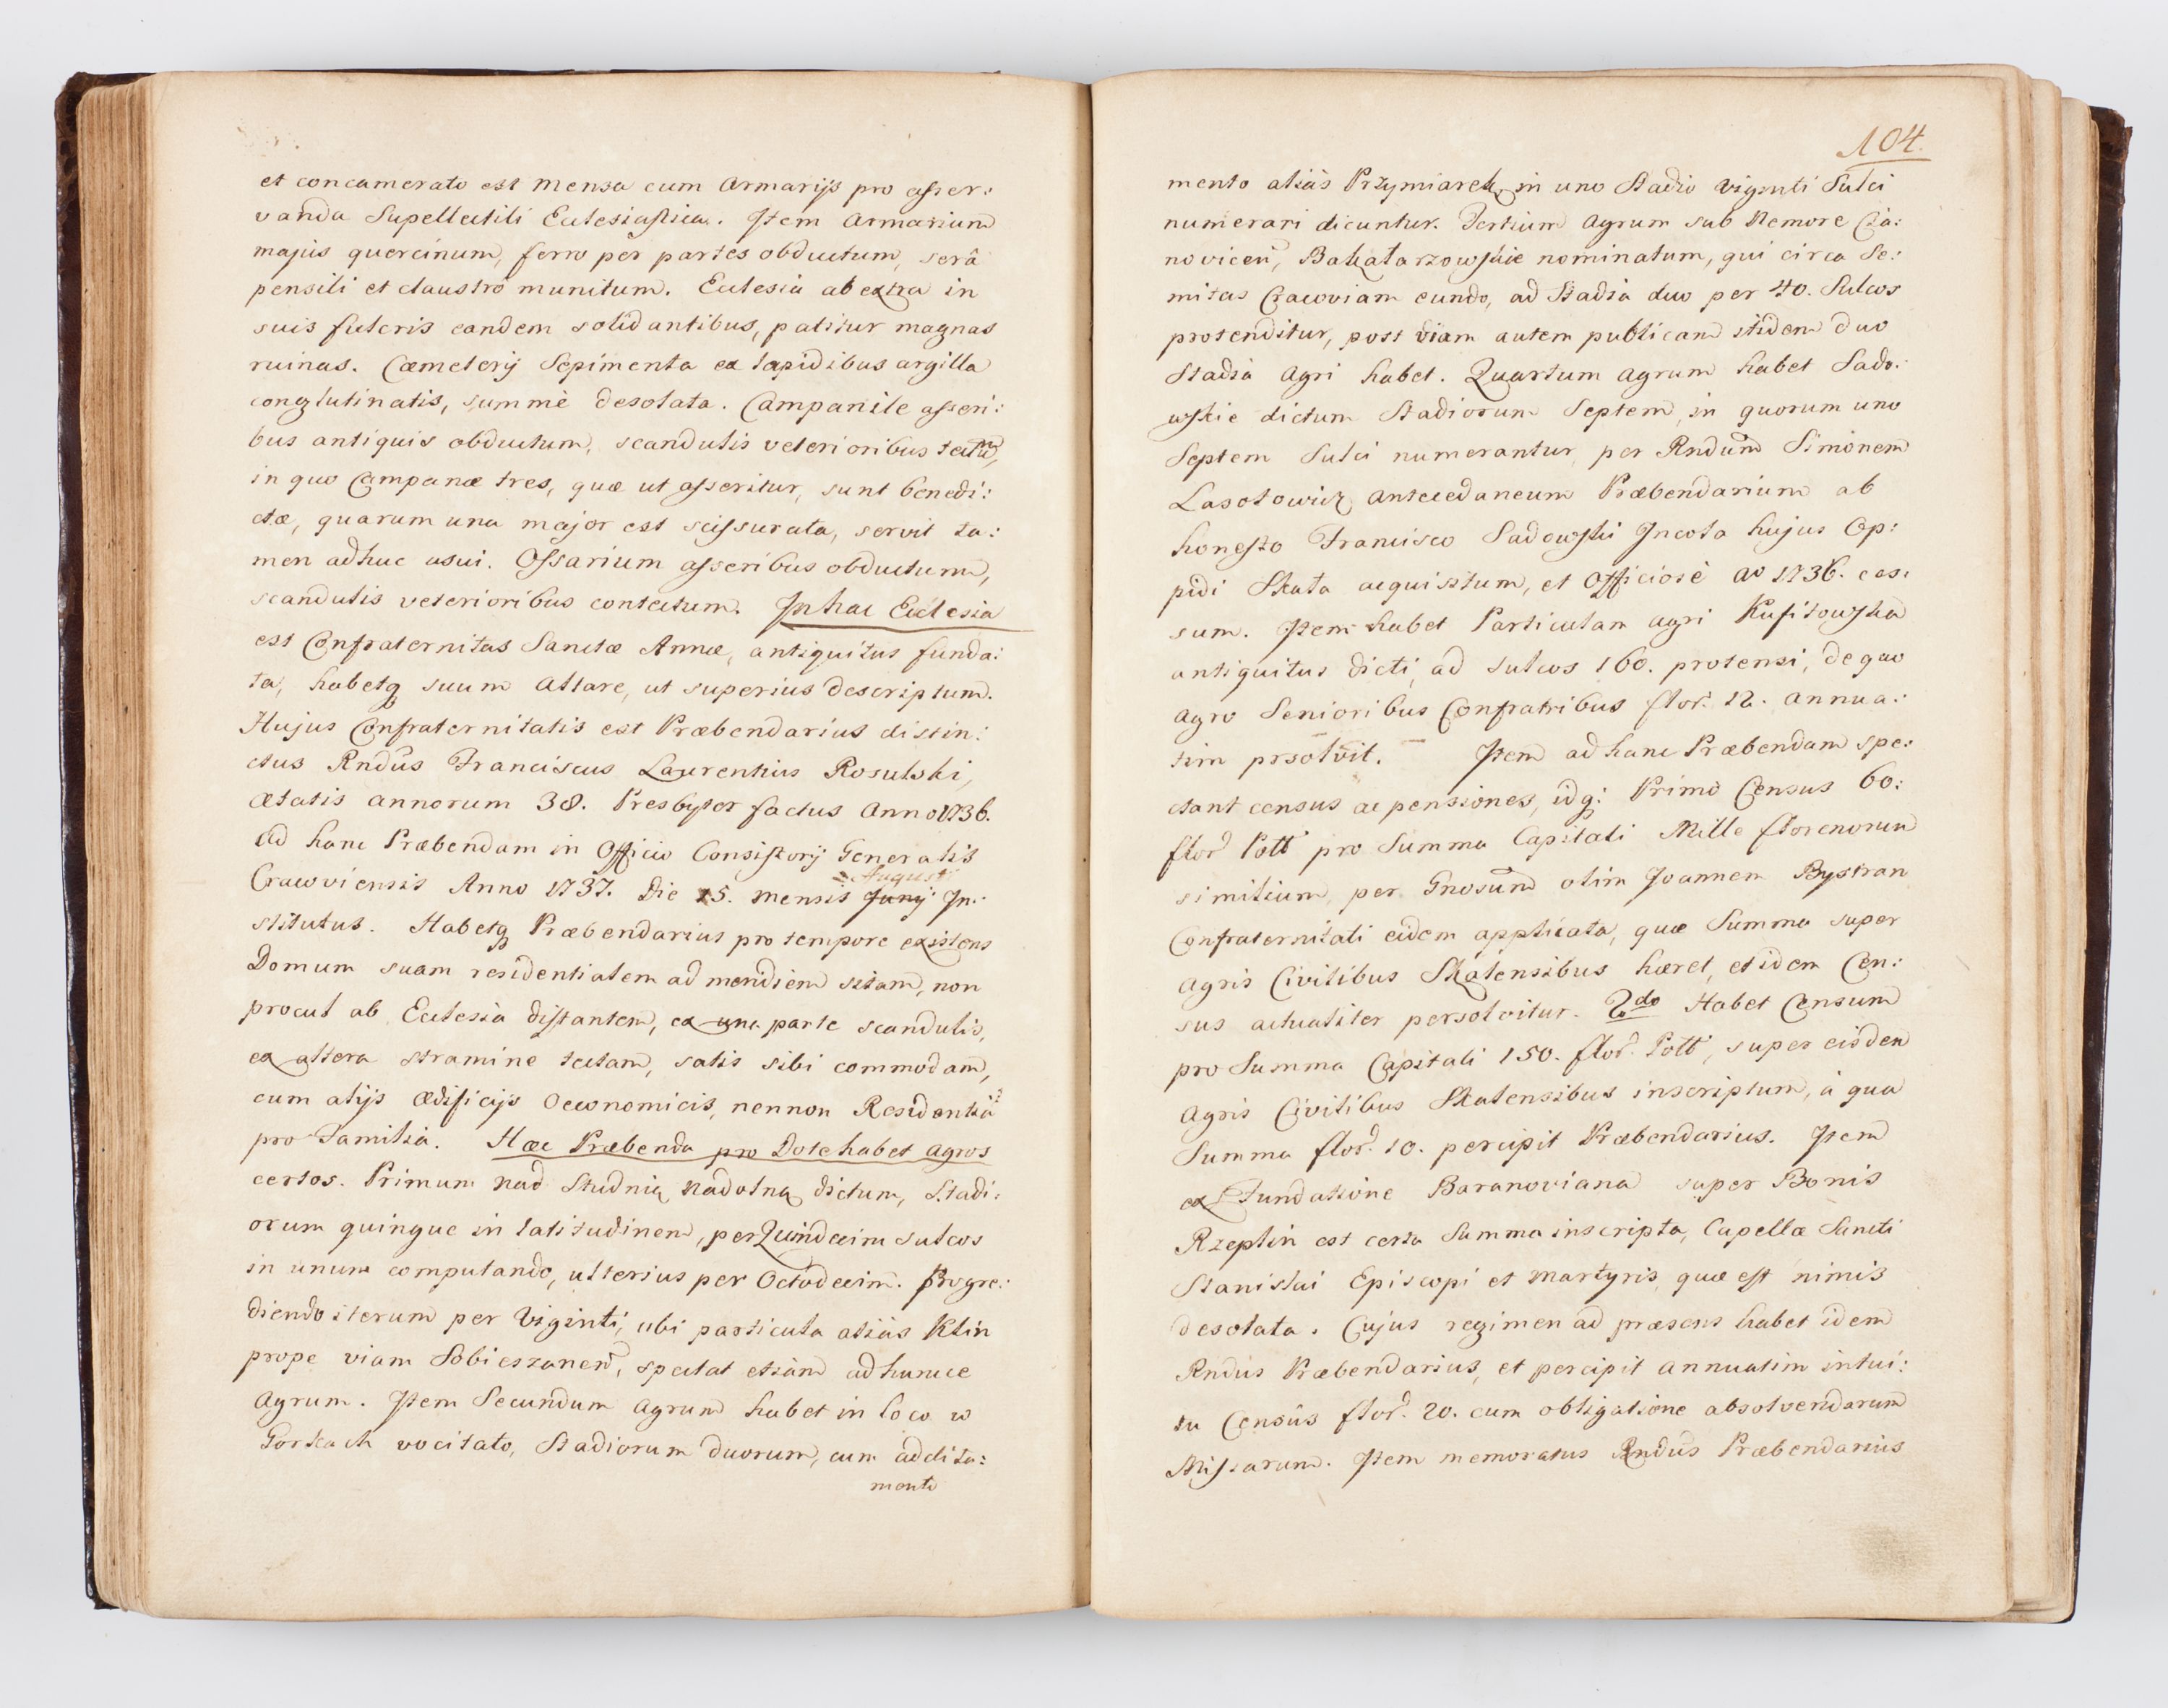 et concamerato est mensa cum Armarijs pro asser:
vanda Supellectili Ecclesiastica. Item Armarium
majus quercinum, ferro per partes obductum, serâ
pensili et claustro munitum. Ecclesia ab extra in
suis fulcris eandem solidantibus, patitur magnas
ruinas. Cæmeterij Sepimenta ex lapidibus argilla
conglutinatis, summè desolata. Campanile asseri:
bus antiquis obductum, scandulis veterioribus tectum,
in quo Campanæ tres, quæ ut asseritur, sunt benedi:
ctæ, quarum una major est scissurata, servit ta:
men adhuc usui. Ossarium asseribus obductum,
scandulis veterioribus contectum. In hac Ecclesia
est Confraternitas Sanctæ Annæ, antiquitus funda:
ta, habetq suum Altare, ut superius descriptum.
Hujus Confraternitatis est Præbendarius distin:
ctus Rndus Franciscus Laurentius Rosulski,
ætatis annorum 38. Presbyter factus Anno 1736.
Ad hanc Præbendam in Officio Consistorij Generalis
Augusti
Cracoviensis Anno 1737. Die 15. mensis Junij In:
stitutus. Habetq Præbendarius pro tempore existens
Domum suam residentialem ad meridiem sitam, non
procul ab Ecclesia distantem, ex una parte scandulis,
ex altera stramine tectam, satis sibi commodam,
cum alijs ædificijs Oeconomicis, necnon Residentia
pro Familia. Hæc Præbenda pro Dote habet agros
certos. Primum nad Studnią nadolną dictum, Stadi:
orum quinque in latitudinem, per Quindecim sulcos
in unum computando, ulterius per Octodecim. Progre:
diendo iterum per Viginti, ubi particula aliàs Klin
prope viam Sobieszanen, spectat etiam ad huncce
Agrum. Item Secundum Agrum habet in loco w
Gorkach vocitato, Stadiorum duorum, cum addita:
mento
104.
mento aliàs Przymiarek, in uno Stadio viginti Sulci
numerari dicuntur. Tertium Agrum sub Nemore Cia:
novicen, Bakałarzowskie nominatum, qui circa Se:
mitas Cracoviam eundo, ad Stadia duo per 40. Sulcos
protenditur, post viam autem publicam itidem duo
Stadia Agri habet. Quartum agrum habet Sado:
wskie dictum Stadiorum Septem, in quorum uno
Septem Sulci numerantur, per Rndum Simonem
Lasotowicz Antecedaneum Præbendarium ab
honesto Francisco Sadowski Incola hujus Op:
pidi Skała acquisitum, et Officiosè Ao 1736. ces:
sum. Item habet Particulam agri Kusitowska
antiquitus dicti, ad sulcos 160. protensi, de quo
agro Senioribus Confratribus flor. 12. annua:
tim prsolvit. Item ad hanc Præbendam spe:
ctant census ac pensiones, idq: Primo Census 60:
flor Poll pro Summa Capitali Mille florenorum
similium, per Gnosum olim Joannem Bystran
Confraternitati eidem applicata, quæ Summa super
agris Civilibus Skalensibus hæret, et idem Cen:
sus actualiter persolvitur. 2do Habet Censum
pro Summa Capitali 150. flor. Poll, super eisdem
Agris Civilibus Skalensibus inscriptum, à qua
Summa flor. 10. percipit Præbendarius. Item
ex Fundatione Baranoviana super Bonis
Rzeplin est certa Summa inscripta, Capellæ Sancti
Stanislai Episcopi et Martyris, quæ est nimis
desolata. Cujus regimen ad præsens habet idem
Rndus Præbendarius, et percipit annuatim intui:
tu Censûs flor. 20. cum obligatione absolvendarum
Missarum. Item memoratus Rndus Præbendarius